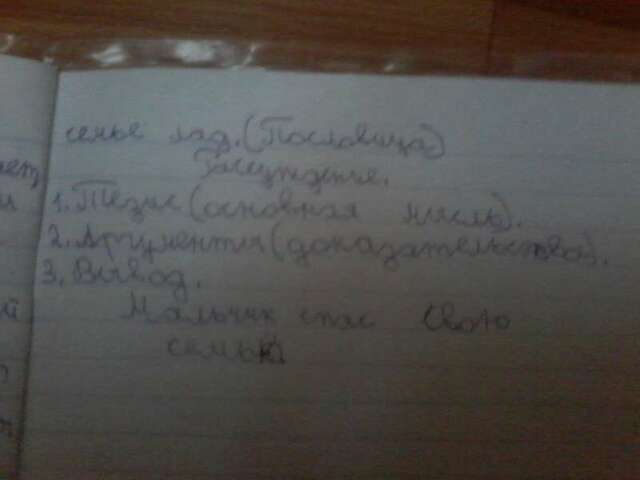 семье лад. (Пословица)
Рассуждения.
1. Тезис (основная мысль).
2. Аргументы (доказательство).
3. Вывод.
Мальчик спас свою
семью